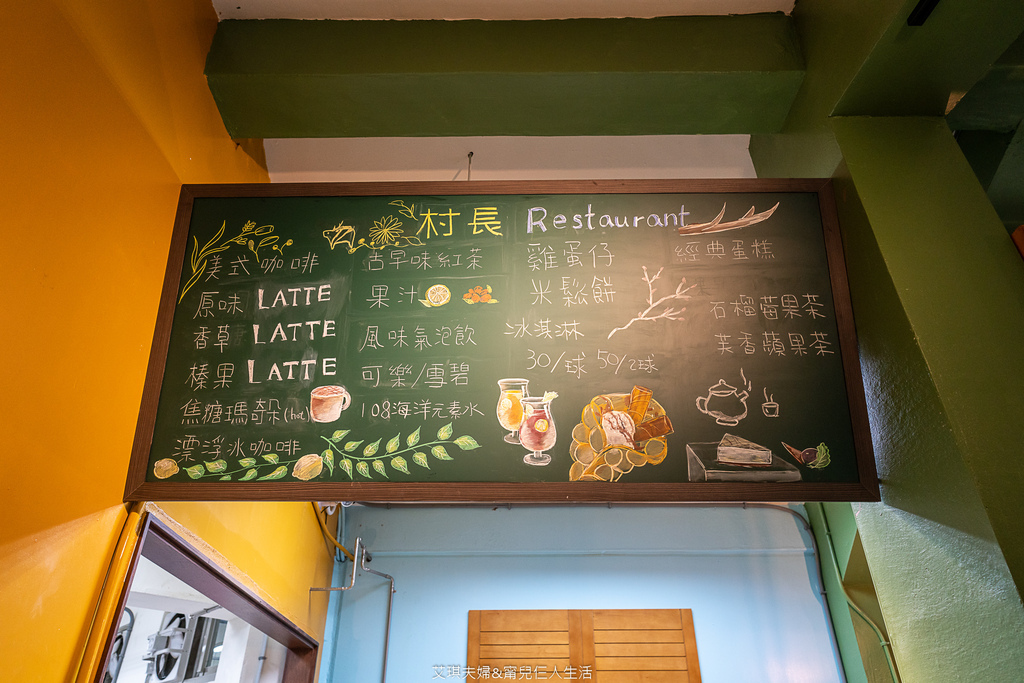 村長 Restaurant
美式咖啡
原味 LATTE
香草 LATTE
榛果 LATTE
焦糖瑪奇朵(hot)
漂浮冰咖啡
古早味紅茶
果汁
風味氣泡飲
可樂/雪碧
108海洋元素水
雞蛋仔
米鬆餅
冰淇淋
30/球 50/2球
經典蛋糕
石榴莓果茶
芙香蘋果茶
艾琪夫婦&甯兒仨人生活